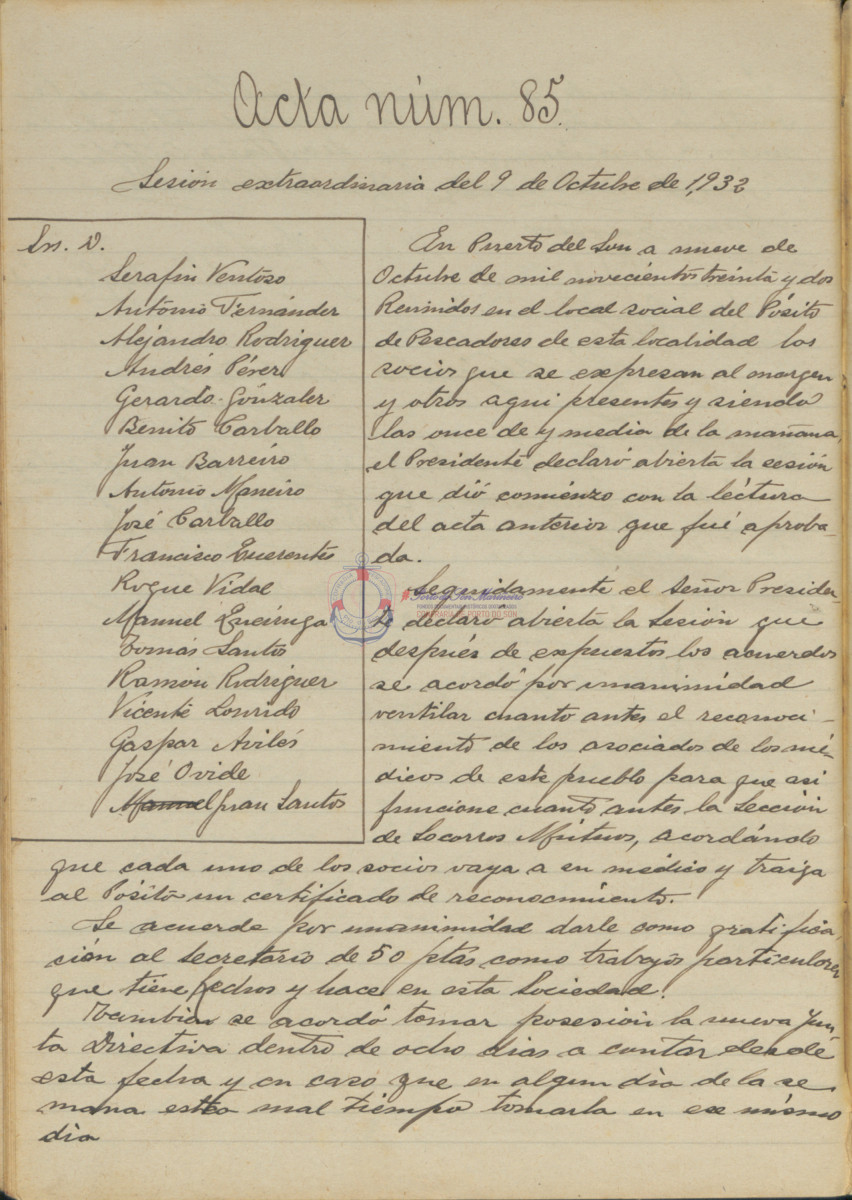 Acta núm. 85.
Sesión extraordinaria del 9 de Octubre de 1,932
Srs. D.
Serafin Ventoso
Antonio Fernánder
Alejandro Rodriguer
Andrés Pérer
Gerardo Gónzaler
Benito Carballo
Juan Barreiro
Antonio Maneiro
José Carballo
Francisco
Roque Vidal
Manuel Queiruga
Tomás Santos
Ramón Rodriguer
Vicente Lourido
Gaspar Avilés
José Ovide
Manuel Juan Santos
En Puerto del Son a nueve de
Octubre de mil novecientos treinta y dos
Reunidos en el local social del Pósito
de Pescadores de esta localidad los
socios que se expresan al margen
y otros aqui presentes y siendo
las once de y media de la mañana,
el Presidente declaró abierta la sesión
que dió comienzo con la léctura
del acta anterior que fué aproba-
da.
Seguidamente el Señor Presiden-
te declaró abierta la Sesión que
después de expuestos los acuerdos
se acordó por unanimidad
ventilar cuanto antes el reconoci-
miento de los asociados de los mé-
dicos de este pueblo para que asi
funcione cuanto antes la Sección
de Socorros Mútuos, acordándo
que cada uno de los socios vaya a su médico y traiga
al Pósito un certificado de reconocimiento.
Se acuerda por unanimidad darle como gratifica-
ción al Secretario de 50 ptas como trabajos particulares
que tiene fechos y hace en esta Sociedad.
Tambien se acordó tomar posesión la nueva Jun-
ta Directiva dentro de ocho dias a contar desde
esta fecha y en caso que en algun dia de la se
mana estea mal tiempo tomarla en ese mismo
dia
CONFRARÍA DE PORTO DO SON